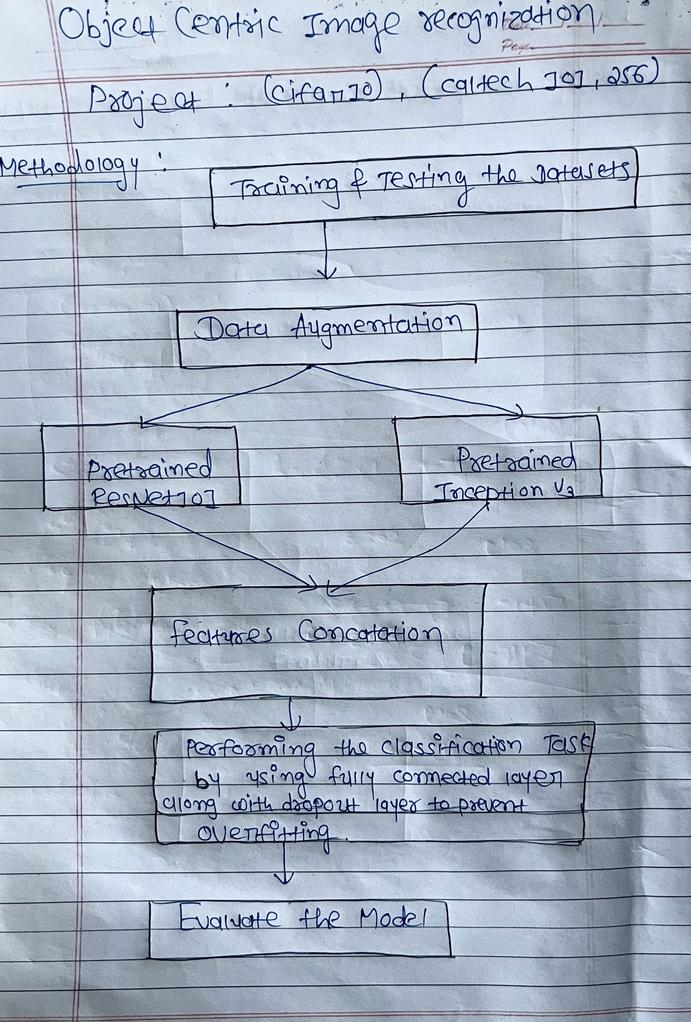 Object Centric Image recognization
Page
Project : (cifar10), (caltech 101, 256)
Methodology :
Training & Testing the Datasets
Data Augmentation
Pretrained
ResNet101
Pretrained
Inception V3
features Concatation
Performing the classification Task
by using fully connected layer
along with dropout layer to prevent
overfitting.
Evaluate the Model